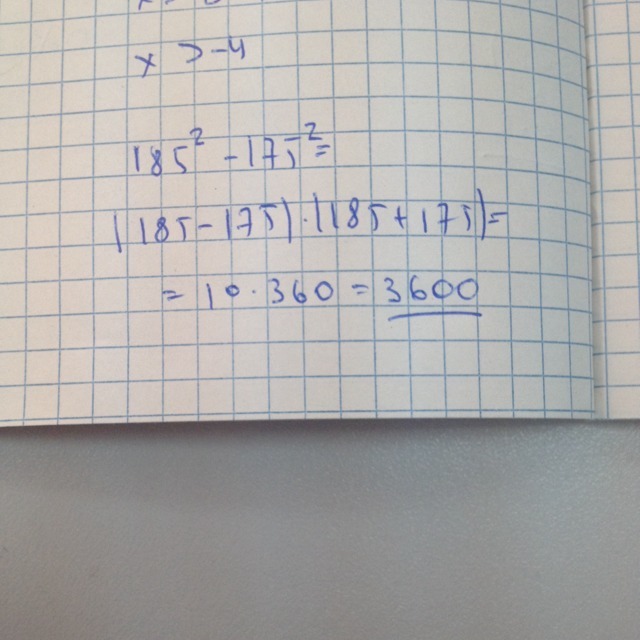 x > -4
185² - 175² =
(185 - 175) · (185 + 175) =
= 10 · 360 = 3600